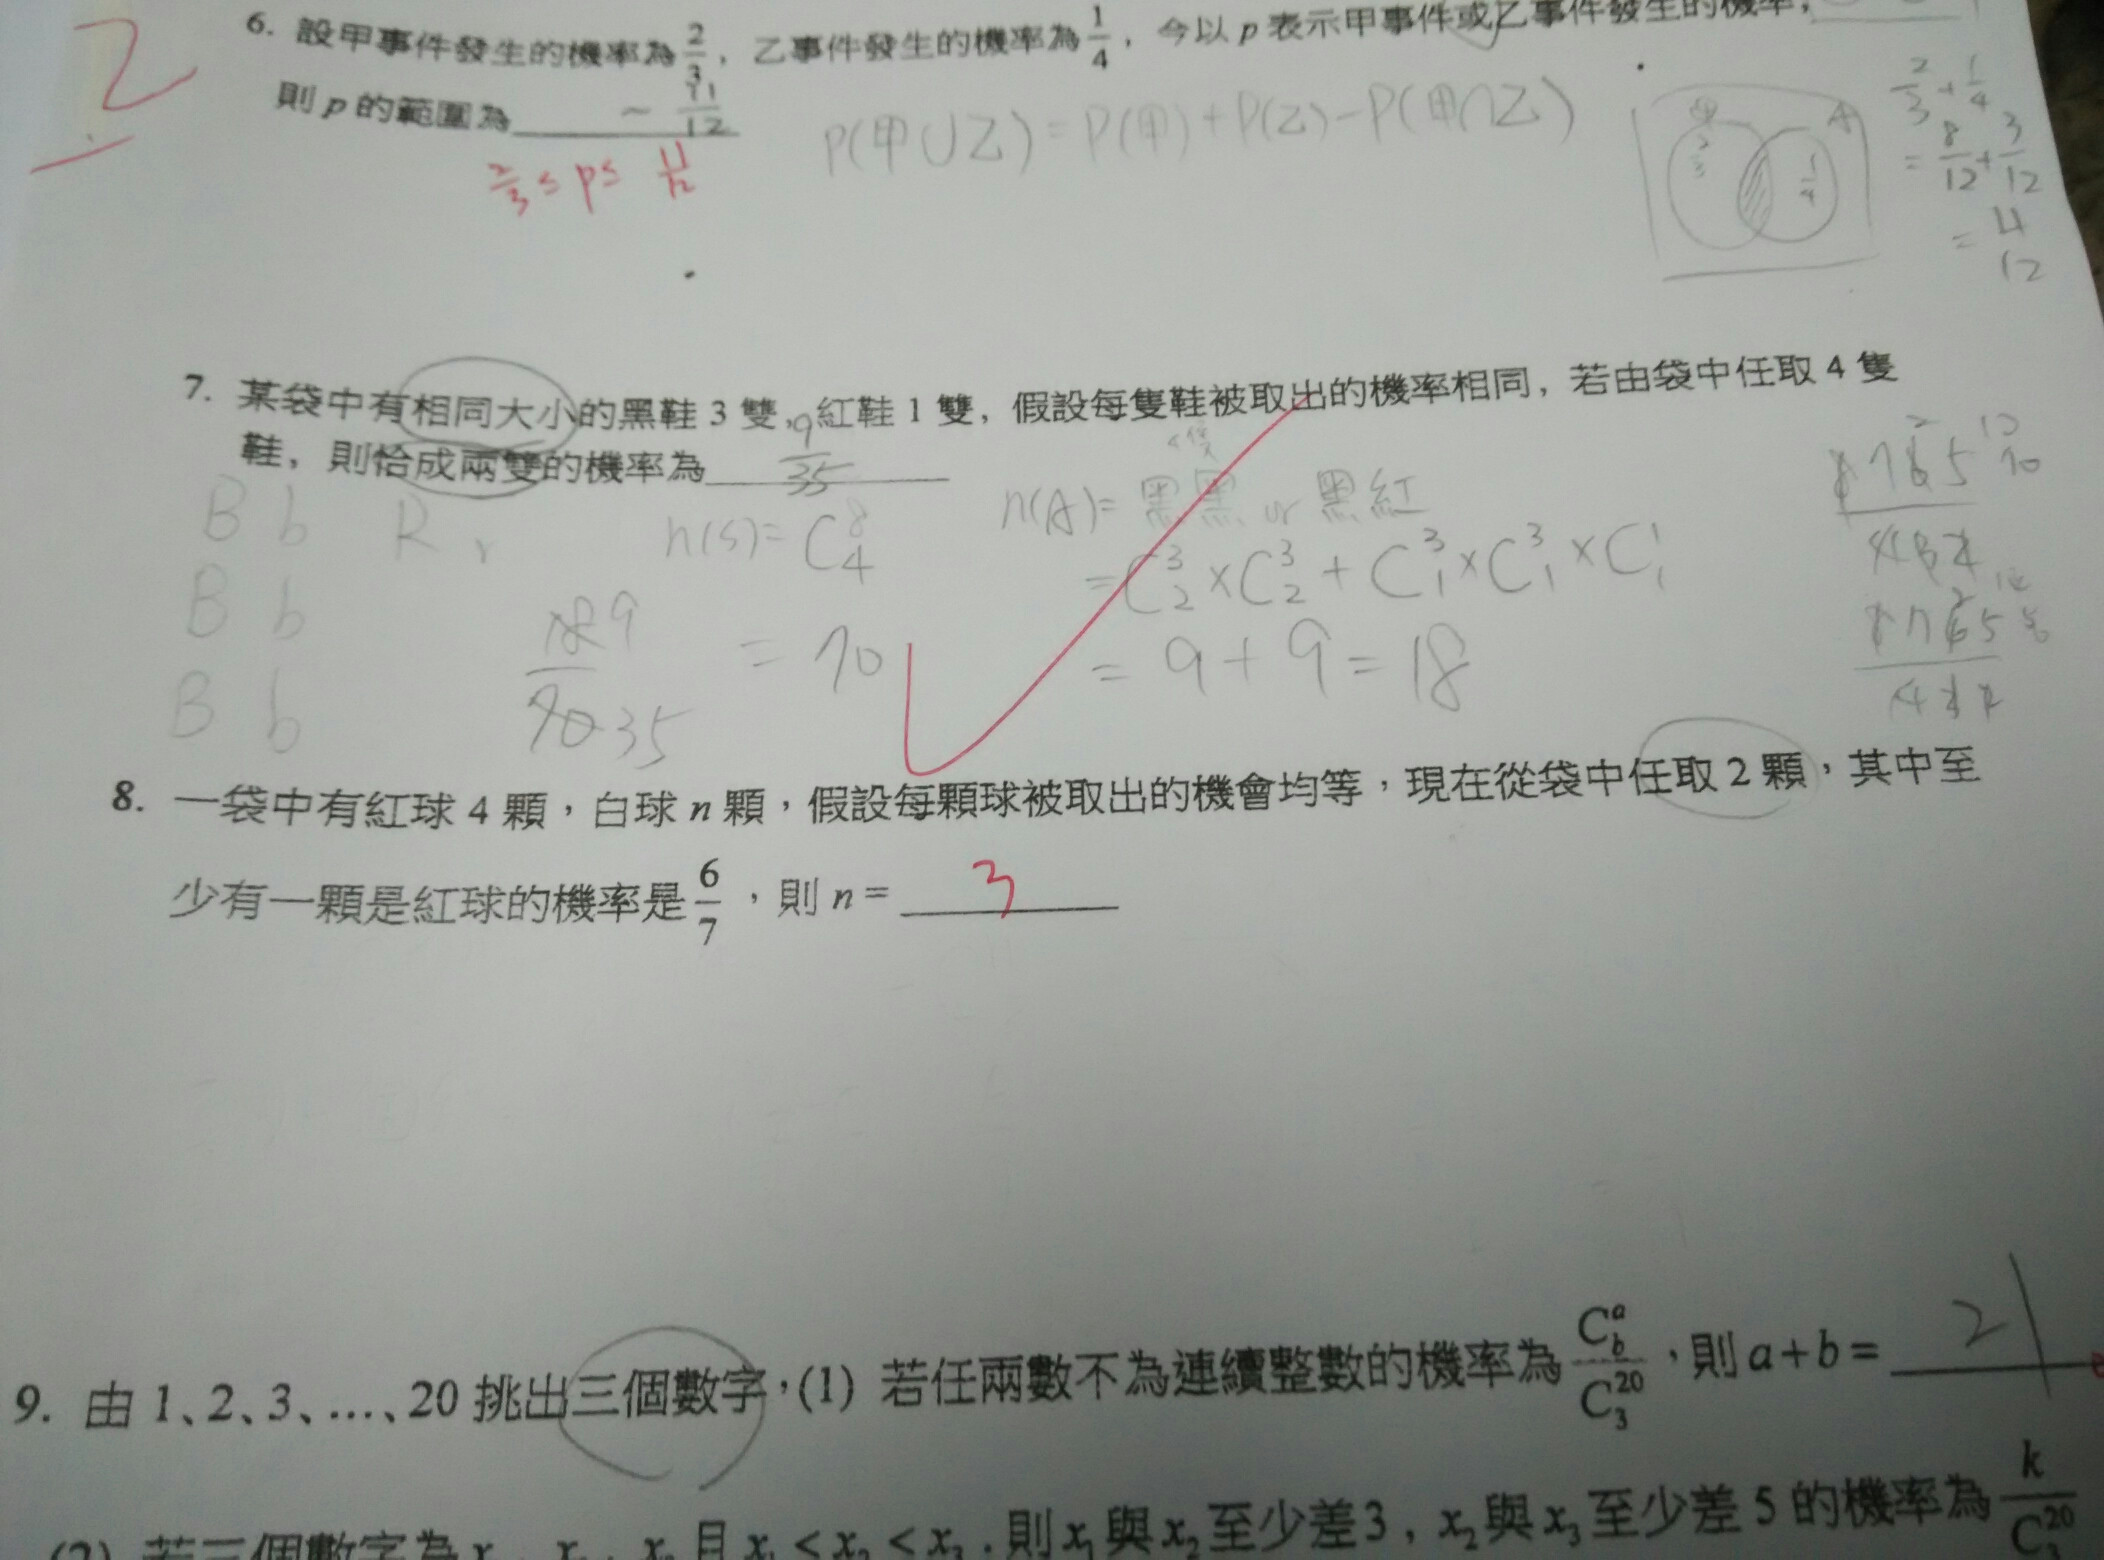 2
6. 設甲事件發生的機率為 2/3，乙事件發生的機率為 1/4，今以 p 表示甲事件或乙事件發生的機率，
則 p 的範圍為 ~ 11/12
2/3 ≤ p ≤ 11/12
P(甲∪乙) = P(甲) + P(乙) - P(甲∩乙)
甲
2/3
1/4
2/3 + 1/4
= 8/12 + 3/12
= 11/12
7. 某袋中有相同大小的黑鞋 3 雙，紅鞋 1 雙，假設每隻鞋被取出的機率相同，若由袋中任取 4 隻
鞋，則恰成兩雙的機率為 9/35
B b R r
B b
B b
n(S) = C^8_4
= 70
18 9
70 35
n(A) = 黑黑 or 黑紅
= C^3_2 × C^3_2 + C^3_1 × C^3_1 × C^1_1
= 9 + 9 = 18
8. 一袋中有紅球 4 顆，白球 n 顆，假設每顆球被取出的機會均等，現在從袋中任取 2 顆，其中至
少有一顆是紅球的機率是 6/7，則 n = 3
9. 由 1、2、3、…、20 挑出三個數字，(1) 若任兩數不為連續整數的機率為 C^a_b/C^20_3，則 a+b = 21
(2) 若三個數字為 x 且 x₁ < x₂ < x₃，則 x₁ 與 x₂ 至少差 3，x₂ 與 x₃ 至少差 5 的機率為 k/C^20_3